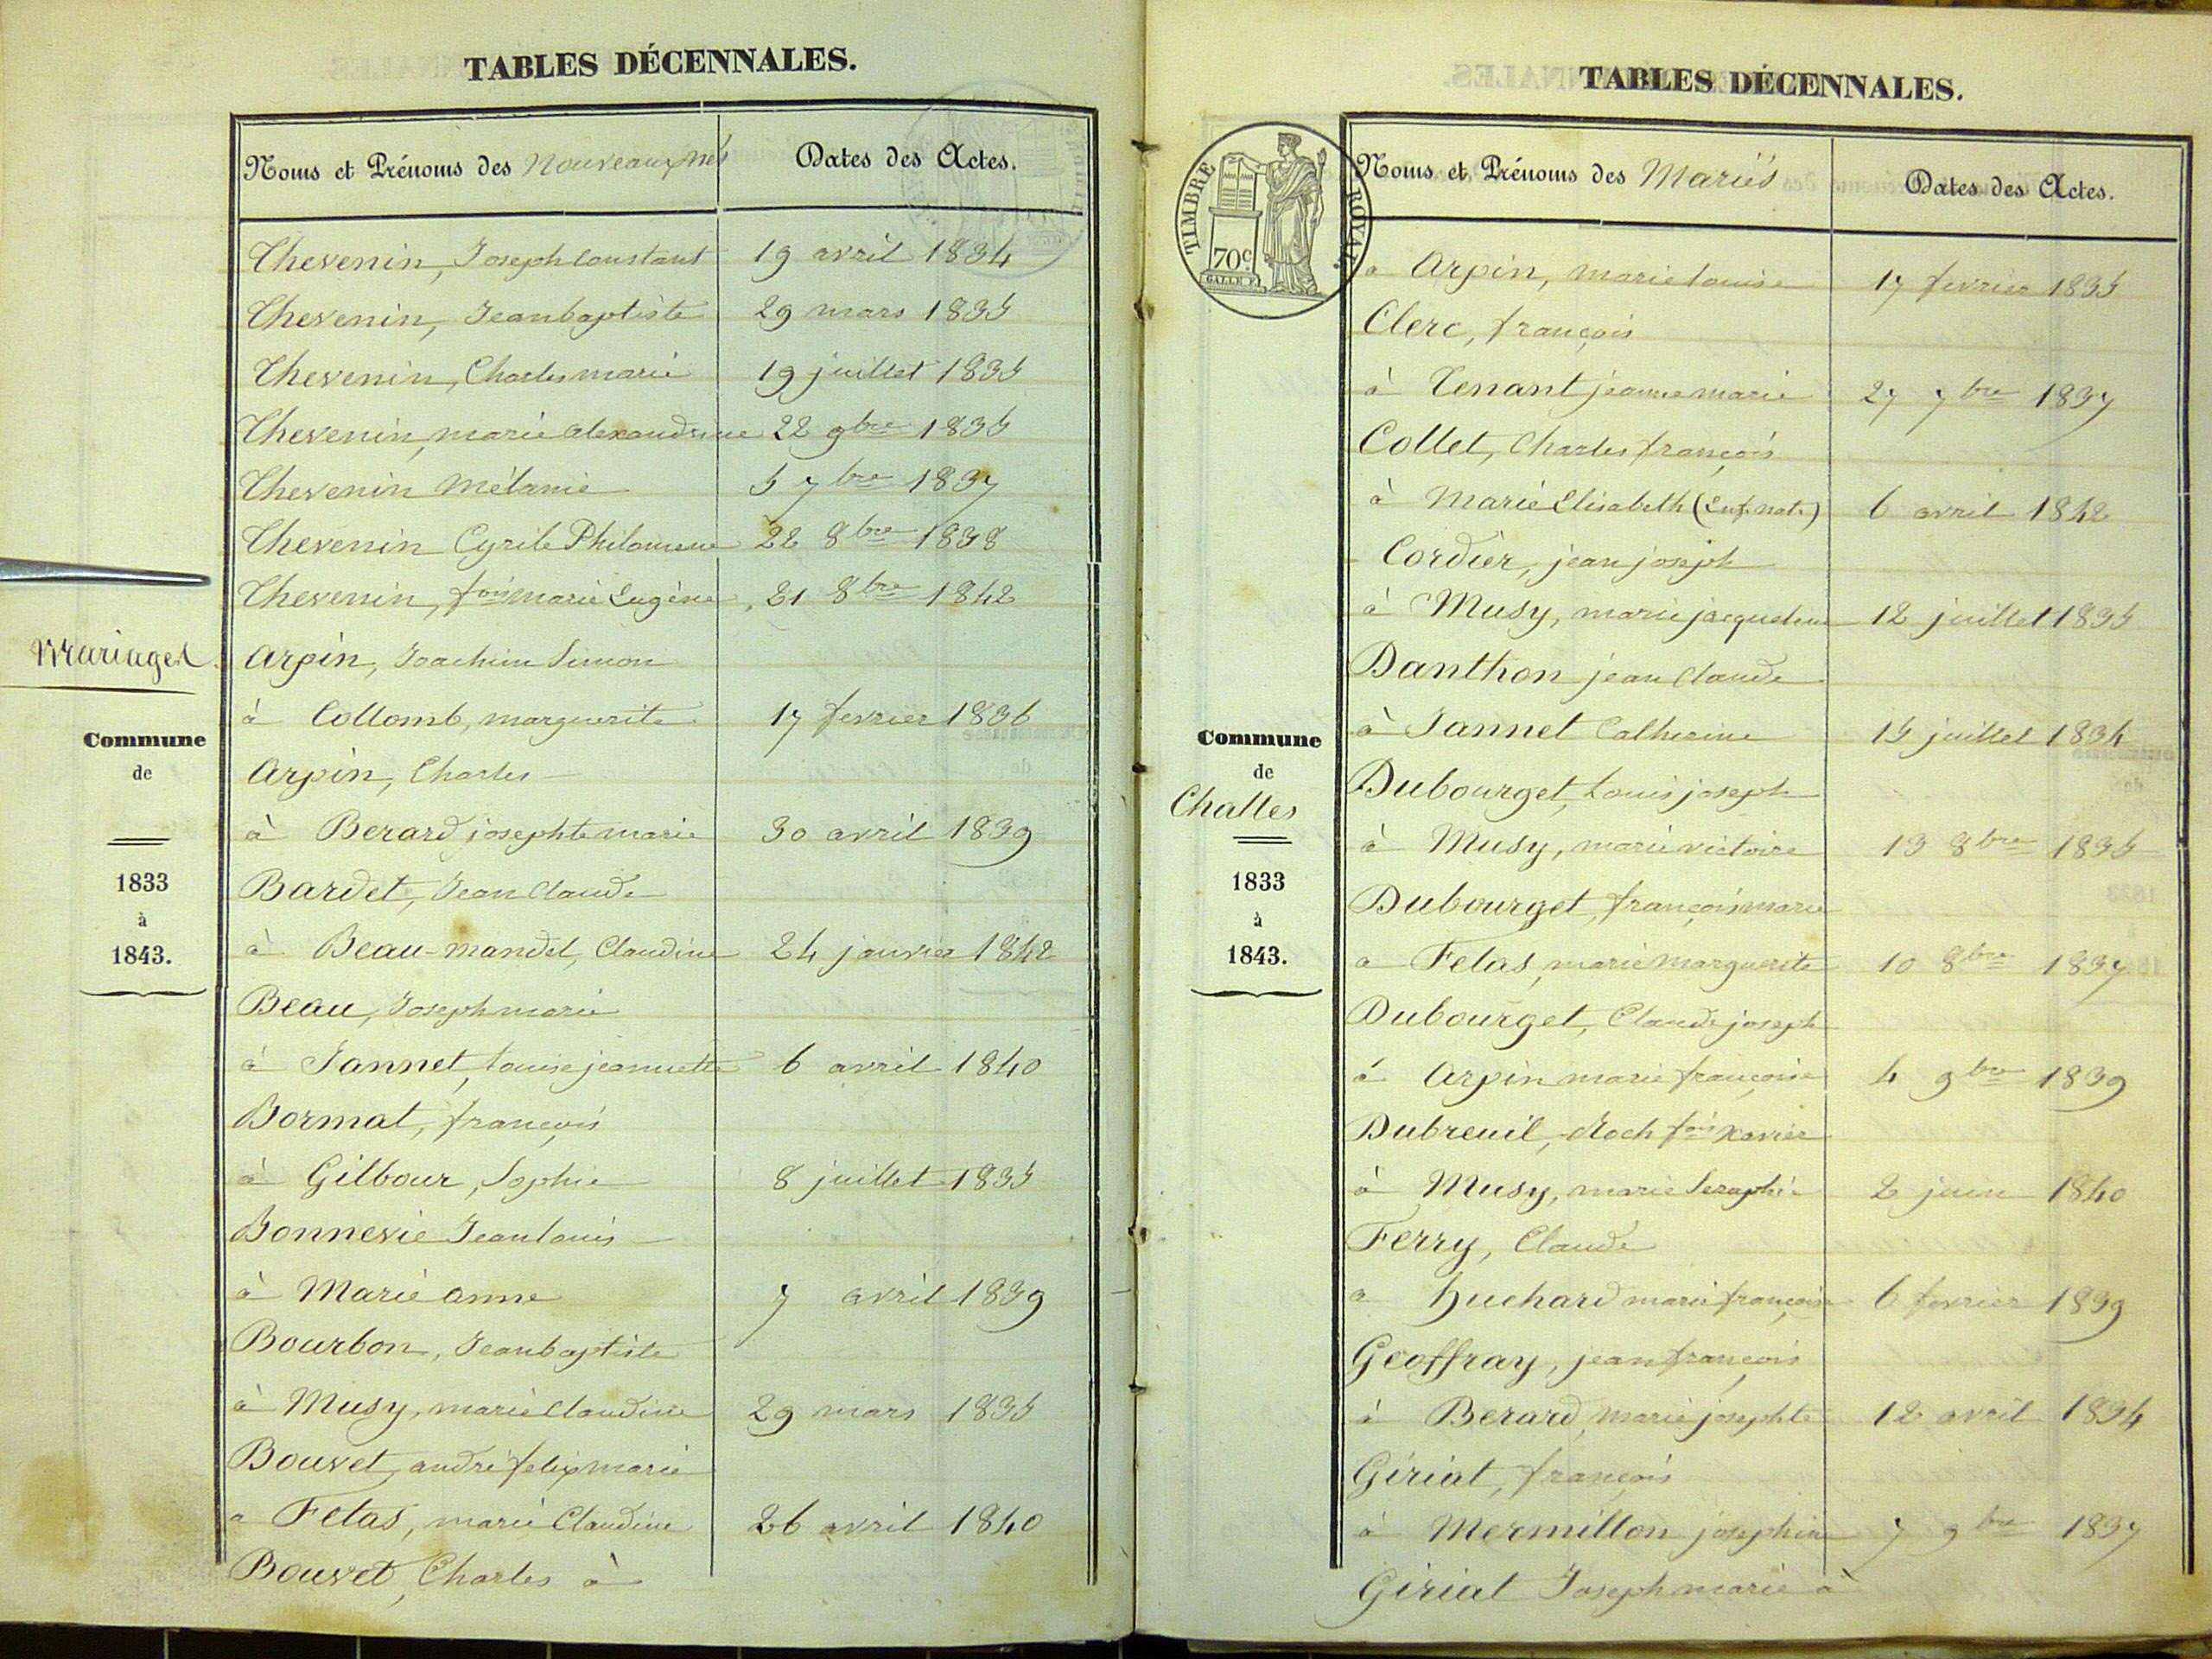 TABLES DÉCENNALES.
Noms et Prénoms des Nouveaux nés
Dates des Actes.
Thevenin, Joseph Constant 19 avril 1834
Thevenin, Jean baptiste 29 mars 1835
Thevenin, Charles marie 19 juillet 1835
Thevenin, marie alexandrine 22 9bre 1835
Thevenin Mélanie 5 7bre 1837
Thevenin Cyrile Philomene 22 8bre 1838
Thevenin, fois marie Eugène 21 8bre 1842
Mariages
Arpin, Joachim Simon
à Collomb, marguerite 17 fevrier 1836
Arpin, Charles
à Berard josephte marie 30 avril 1839
Bardet, Jean Claude
à Beau-mandel, Claudine 24 janvier 1842
Beau, Joseph marie
à Jannet, Louise jeannette 6 avril 1840
Bormat, françois
à Gilbour, Sophie 8 juillet 1835
Bonnevie Jean louis
à Marie anne 7 avril 1839
Bourbon, Jean baptiste
à Musy, marie Claudine 29 mars 1835
Bouvet, andré felix marie
a Fetas, marie Claudine 26 avril 1840
Bouvet, Charles à
Commune
de
1833
à
1843.
TABLES DÉCENNALES.
TIMBRE ROYAL.
70c
GALLE F.
Noms et Prénoms des Mariés
Dates des Actes.
a Arpin, marie louise 17 fevrier 1835
Clerc, françois
à Tenant jeanne marie 27 7bre 1837
Collet, Charles françois
à Marie Elisabeth (Enf. nat.) 6 avril 1842
Cordier, jean joseph
à Musy, marie jacqueline 12 juillet 1835
Danthon jean Claude
à Jannet Catherine 15 juillet 1834
Dubourget, Louis joseph
à Musy, marie victoire 13 8bre 1835
Dubourget, françois marie
a Fetas, marie Marguerite 10 8bre 1837
Dubourget, Claude joseph
à Arpin marie françoise 4 9bre 1839
Dubreuil, Roch fois Xavier
à Musy, marie Seraphie 2 juin 1840
Ferry, Claude
a Huchard marie françoise 6 fevrier 1839
Geoffray, jean françois
à Berard, marie josephte 12 avril 1834
Gériat, françois
à Mermillon josephine 7 9bre 1837
Gériat Joseph marie à
Commune
de
Challes
1833
à
1843.